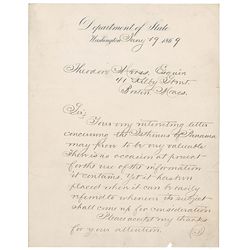 Department of State
Washington, Jany 19 1869
Theodore Esquire
41 Kilby Street
Boston, Mass.
Sir:
Your very interesting letter
concerning the Isthmus of Panama
may prove to be very valuable.
There is no occasion at present
for the use of the information
it contains. Yet it has been
placed where it can be easily
referred to whenever its subject
shall come up for consideration.
Please accept my thanks
for your attention.